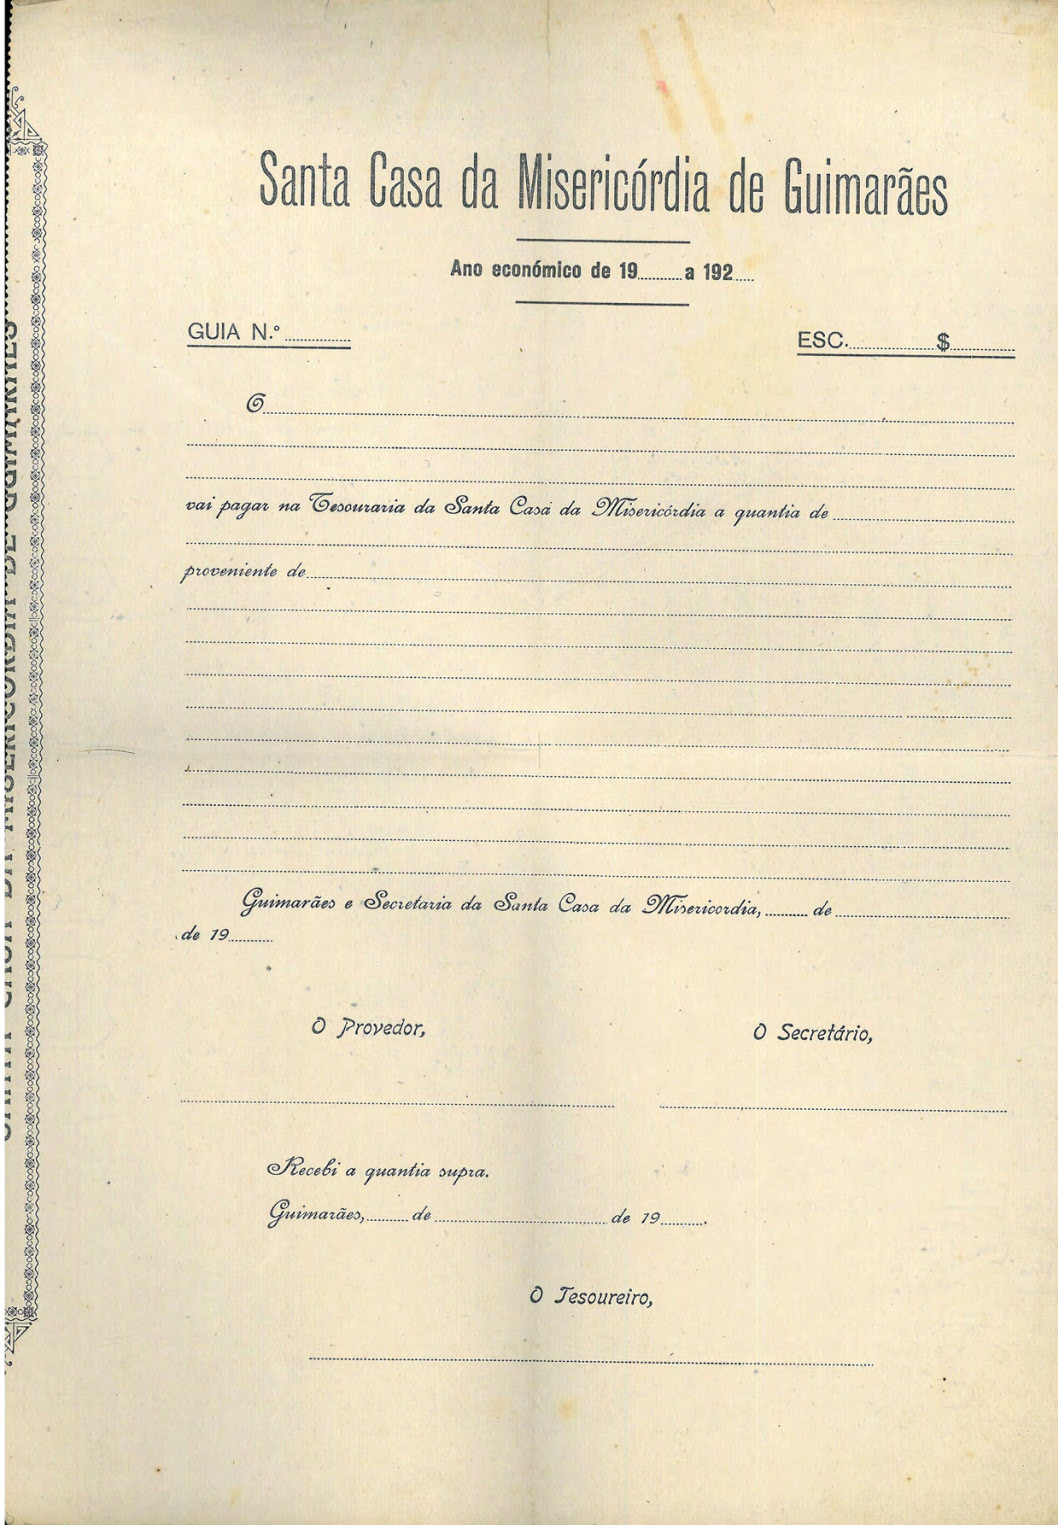 Santa Casa da Misericórdia de Guimarães
Ano económico de 19........ a 192....
GUIA N.º ............
ESC. ............ $ ............
O ............
vai pagar na Tesouraria da Santa Casa da Misericórdia a quantia de ............
proveniente de ............
Guimarães e Secretaria da Santa Casa da Misericordia, ........ de ............
de 19........
O Provedor,
O Secretário,
Recebi a quantia supra.
Guimarães, ........ de ............ de 19........
O Tesoureiro,
SANTA CASA DA MISERICORDIA DE GUIMARÃES